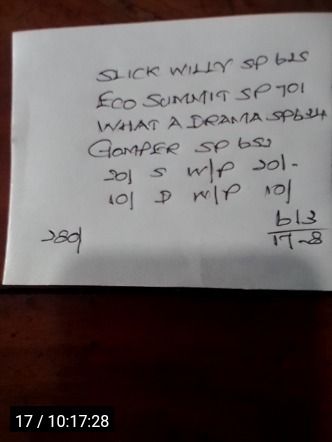 SLICK WILLY SP 625
ECO SUMMIT SP 701
WHAT A DRAMA SP 624
GOMPER SP 652
20/ S W/P 20/-
10/ D W/P 10/
280/
613
17-8
17 / 10:17:28